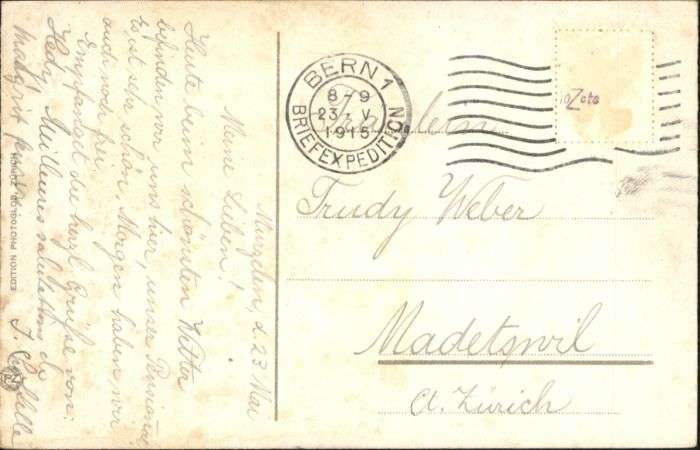 Murzelen, d. 23 Mai
Meine Lieben!
Heute beim schönsten Wetter
befinden wir uns hier, unser
so ist sehr schön, Morgen haben wir
auch noch frei.
Empfanget die herzl Grüße von:
Hedy, Meilleures salutations de
EDITION PHOTOGLOB ZÜRICH
BERN 1
8-9
23 V
1915
BRIEFEXPEDITION
Fräulein
Trudy Weber
Madetswil
Ct. Zürich
10 Z cts